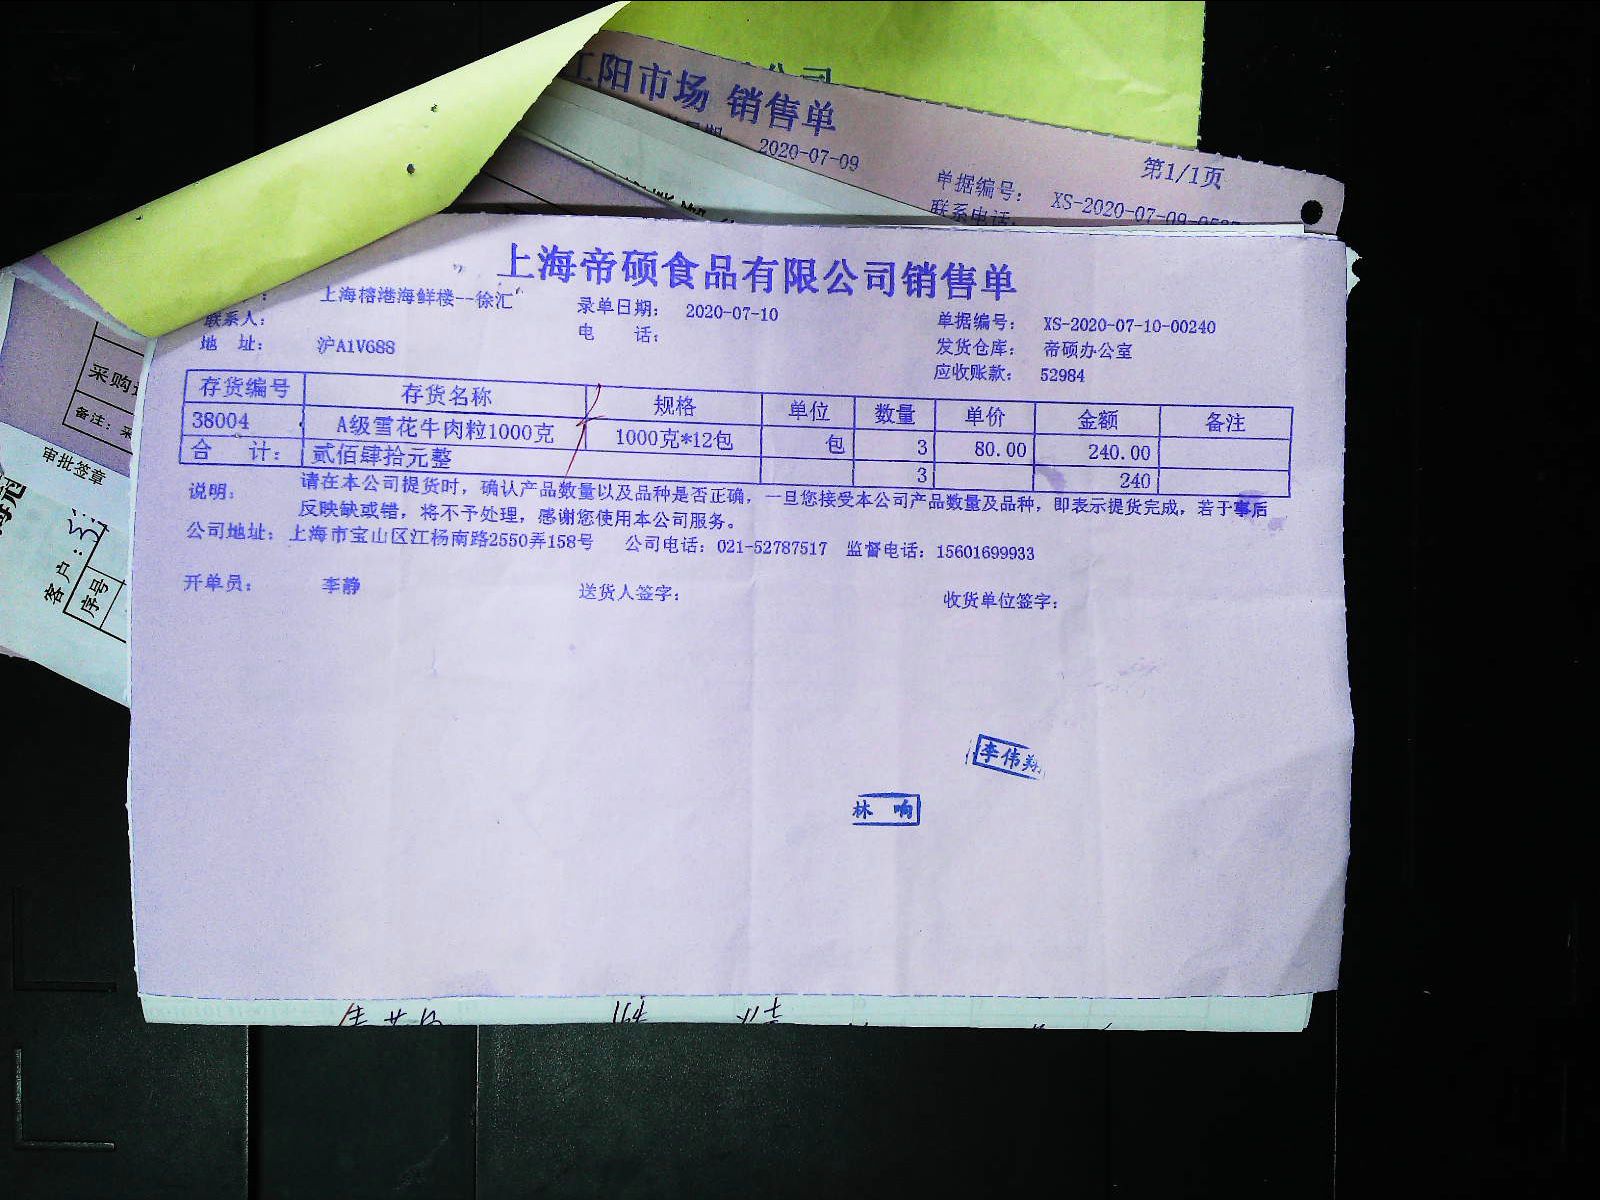 江阳市场 销售单
2020-07-09
第1/1页
单据编号: XS-2020-07-09-
联系电话:
上海帝硕食品有限公司销售单
上海榕港海鲜楼--徐汇 录单日期: 2020-07-10 单据编号: XS-2020-07-10-00240
联系人: 电 话: 发货仓库: 帝硕办公室
地 址: 沪A1V688 应收账款: 52984
存货编号 存货名称 规格 单位 数量 单价 金额 备注
38004 A级雪花牛肉粒1000克 1000克*12包 包 3 80.00 240.00
合 计: 贰佰肆拾元整 3 240
说明: 请在本公司提货时，确认产品数量以及品种是否正确，一旦您接受本公司产品数量及品种，即表示提货完成，若于事后
反映缺或错，将不予处理，感谢您使用本公司服务。
公司地址: 上海市宝山区江杨南路2550弄158号 公司电话: 021-52787517 监督电话: 15601699933
开单员: 李静 送货人签字: 收货单位签字:
李伟翔
林 响
采购
备注:
审批签章
客户:
序号